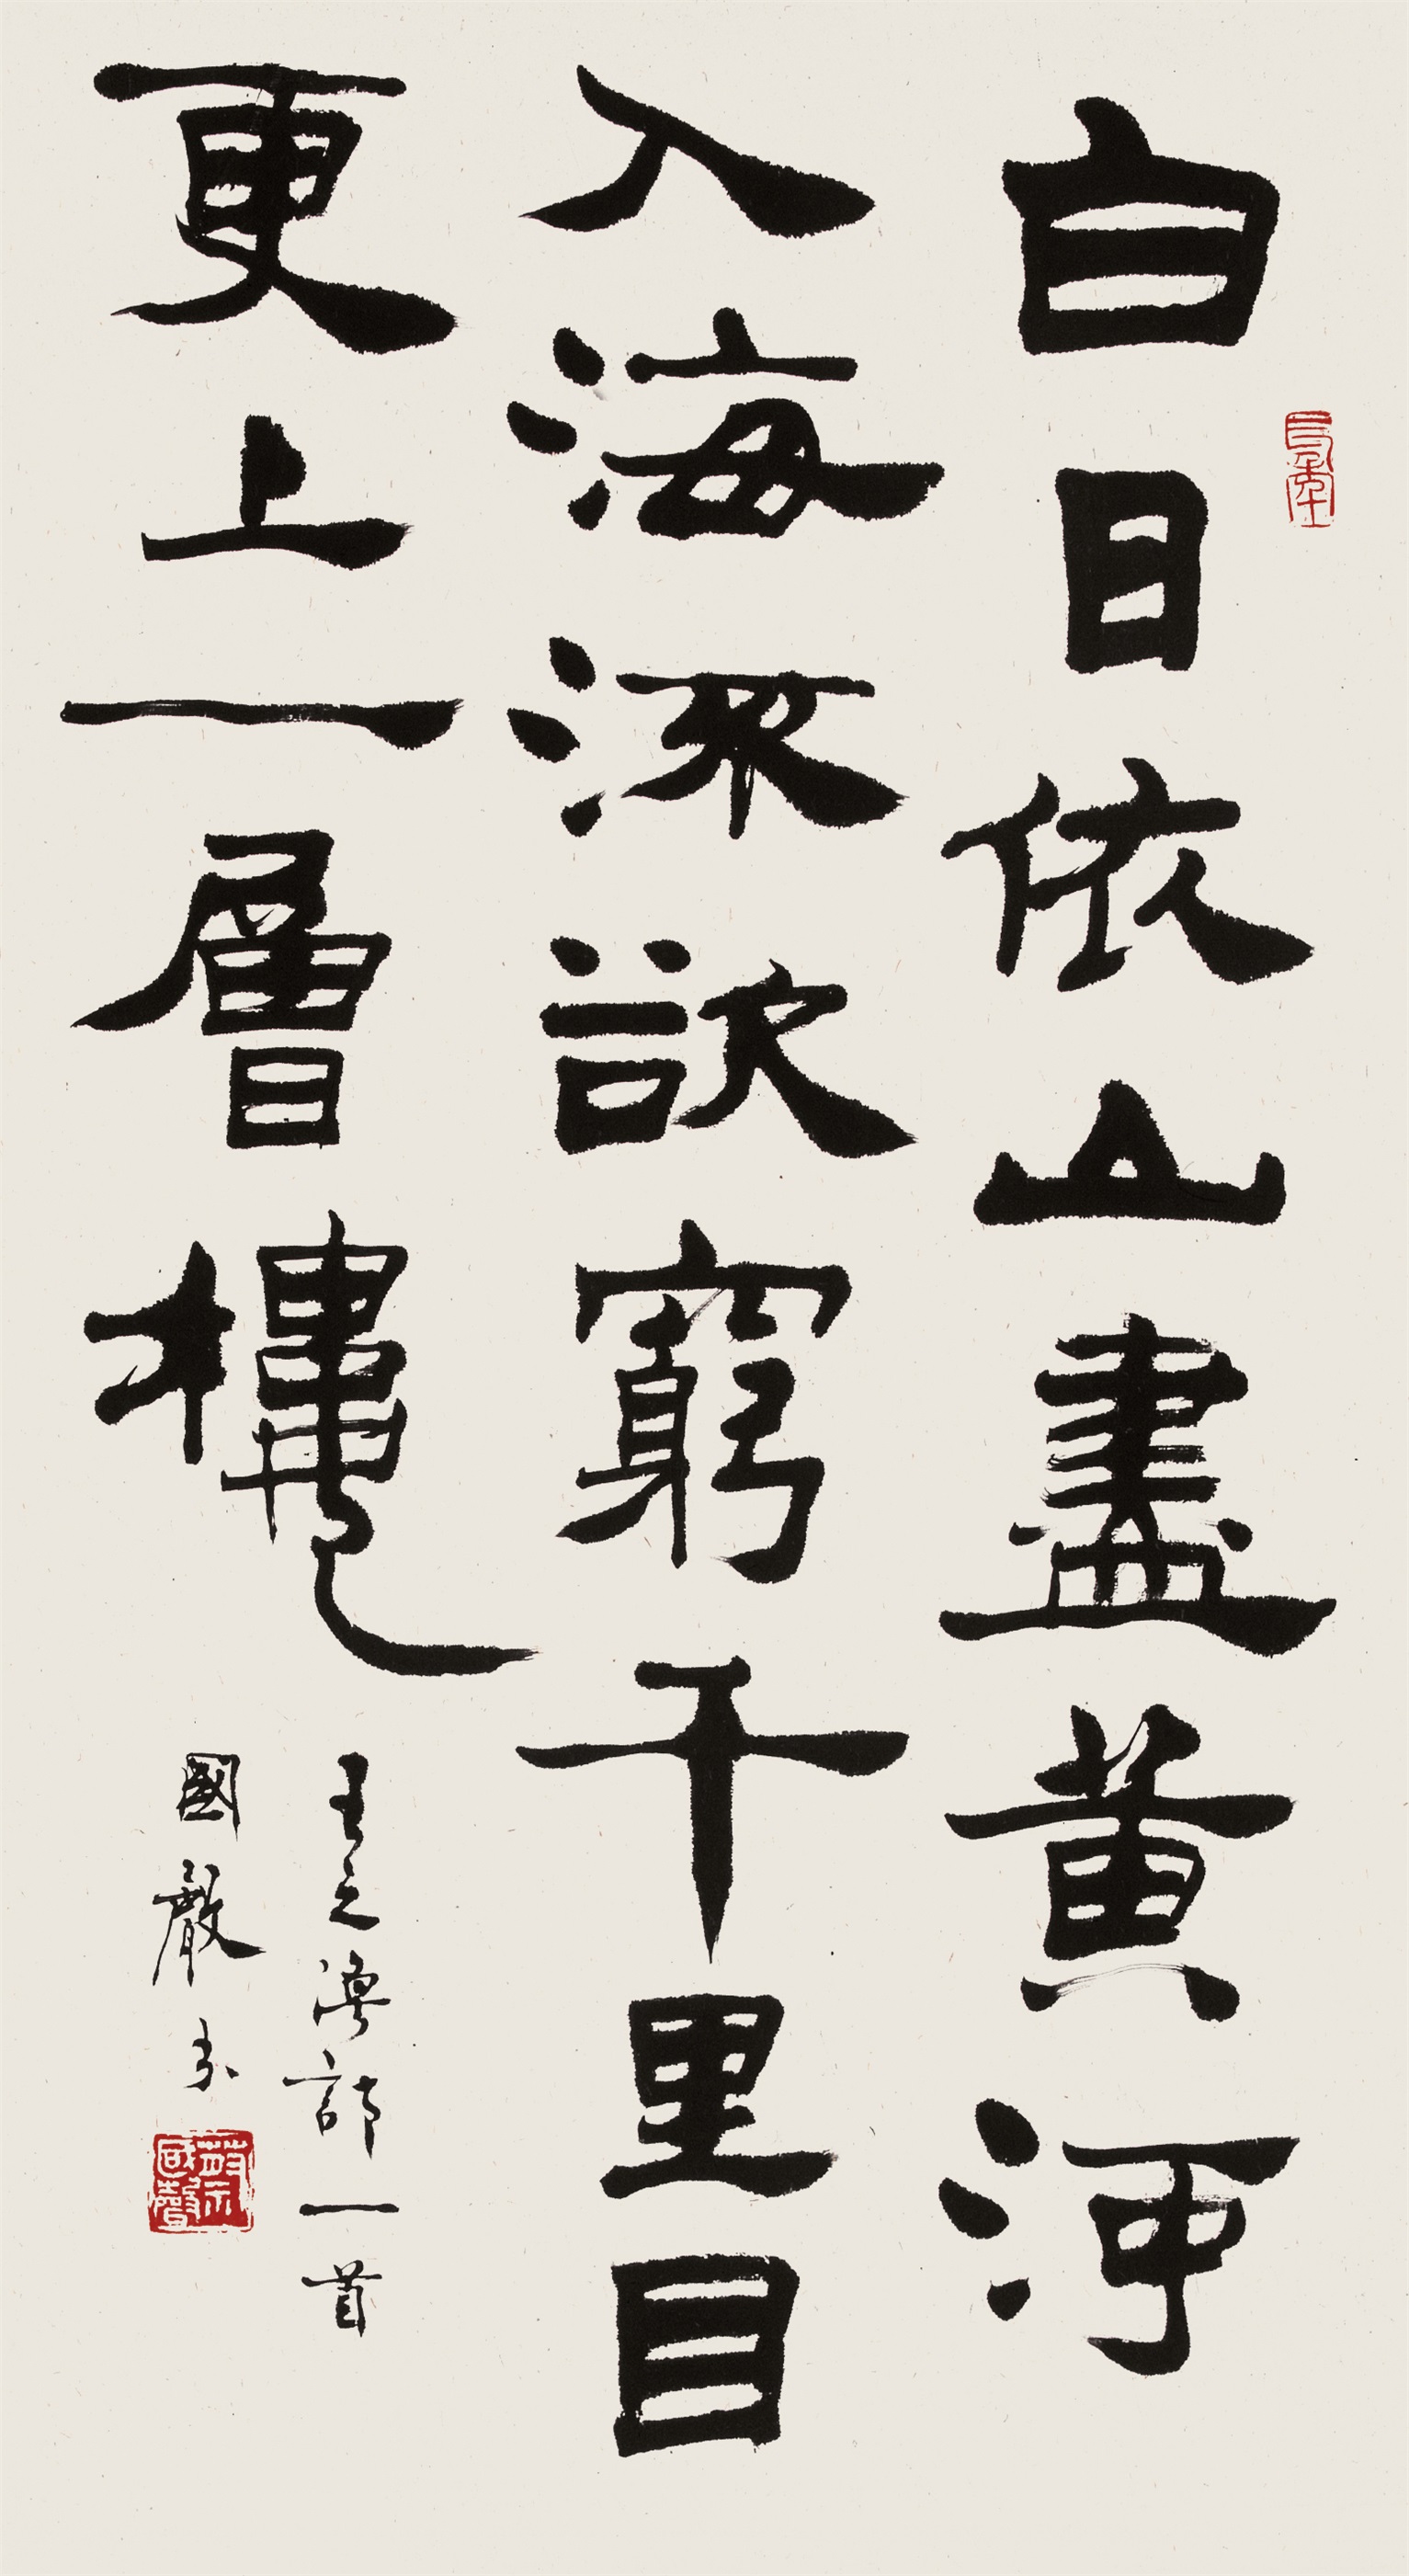 白日依山盡黃河
入海流欲窮千里目
更上一層樓
王之渙詩一首
國嚴书